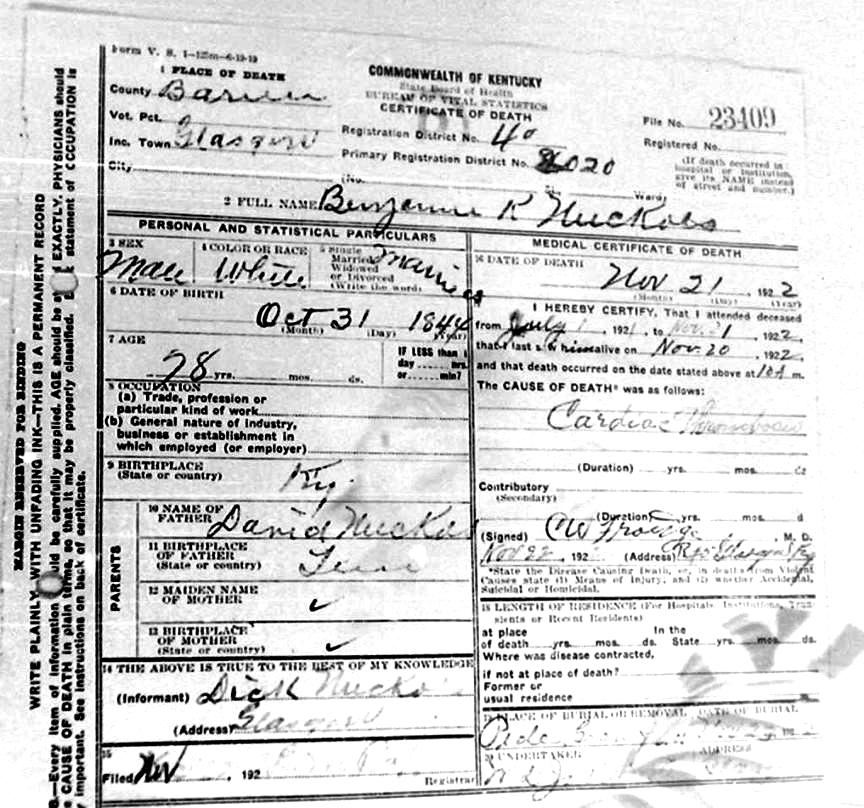 Form V. S. 1-125m-6-19-19
1 PLACE OF DEATH
County Barren
Vot. Pct.
Inc. Town Glasgow
City
COMMONWEALTH OF KENTUCKY
State Board of Health
BUREAU OF VITAL STATISTICS
CERTIFICATE OF DEATH
Registration District No. 40
Primary Registration District No. 2020
(No. St. Ward)
File No. 23409
Registered No.
(If death occurred in
hospital or institution,
give its NAME instead
of street and number.)
2 FULL NAME Benjamin K Nuckols
PERSONAL AND STATISTICAL PARTICULARS
3 SEX
Male
4 COLOR OR RACE
White
5 Single
Married
Widowed
or Divorced
(Write the word)
Married
6 DATE OF BIRTH
Oct 31 1844
(Month) (Day) (Year)
7 AGE
78 yrs. mos. ds.
IF LESS than 1
day hrs.
or min?
8 OCCUPATION
(a) Trade, profession or
particular kind of work
(b) General nature of industry,
business or establishment in
which employed (or employer)
9 BIRTHPLACE
(State or country)
Ky.
PARENTS
10 NAME OF
FATHER David Nuckols
11 BIRTHPLACE
OF FATHER
(State or country) Tenn
12 MAIDEN NAME
OF MOTHER ✓
13 BIRTHPLACE
OF MOTHER
(State or country) ✓
14 THE ABOVE IS TRUE TO THE BEST OF MY KNOWLEDGE
(Informant) Dick Nuckols
(Address) Glasgow
15
Filed Nov 192
Registrar
MEDICAL CERTIFICATE OF DEATH
16 DATE OF DEATH
Nov 21 1922
(Month) (Day) (Year)
I HEREBY CERTIFY, That I attended deceased
from July 1 1921, to Nov. 21 1922,
that I last saw him alive on Nov. 20 1922
and that death occurred on the date stated above at 10 A m.
The CAUSE OF DEATH* was as follows:
Cardiac Thrombosis
(Duration) yrs. mos. ds
Contributory
(Secondary)
(Duration) yrs. mos. d
(Signed) CW Froedge, M. D.
Nov 22, 192 (Address) Glasgow Ky
*State the Disease Causing Death, or, in deaths from Violent
Causes state (1) Means of Injury; and (2) whether Accidental,
Suicidal or Homicidal.
18 LENGTH OF RESIDENCE (For Hospitals, Institutions, Tran-
sients or Recent Residents)
at place In the
of death yrs. mos. ds. State yrs. mos. ds.
Where was disease contracted,
if not at place of death?
Former or
usual residence
19 PLACE OF BURIAL OR REMOVAL DATE OF BURIAL
192
20 UNDERTAKER ADDRESS
MARGIN RESERVED FOR BINDING
WRITE PLAINLY WITH UNFADING INK—THIS IS A PERMANENT RECORD
B.—Every item of information should be carefully supplied. AGE should be stated EXACTLY. PHYSICIANS should
state CAUSE OF DEATH in plain terms, so that it may be properly classified. Exact statement of OCCUPATION is
very important. See instructions on back of certificate.